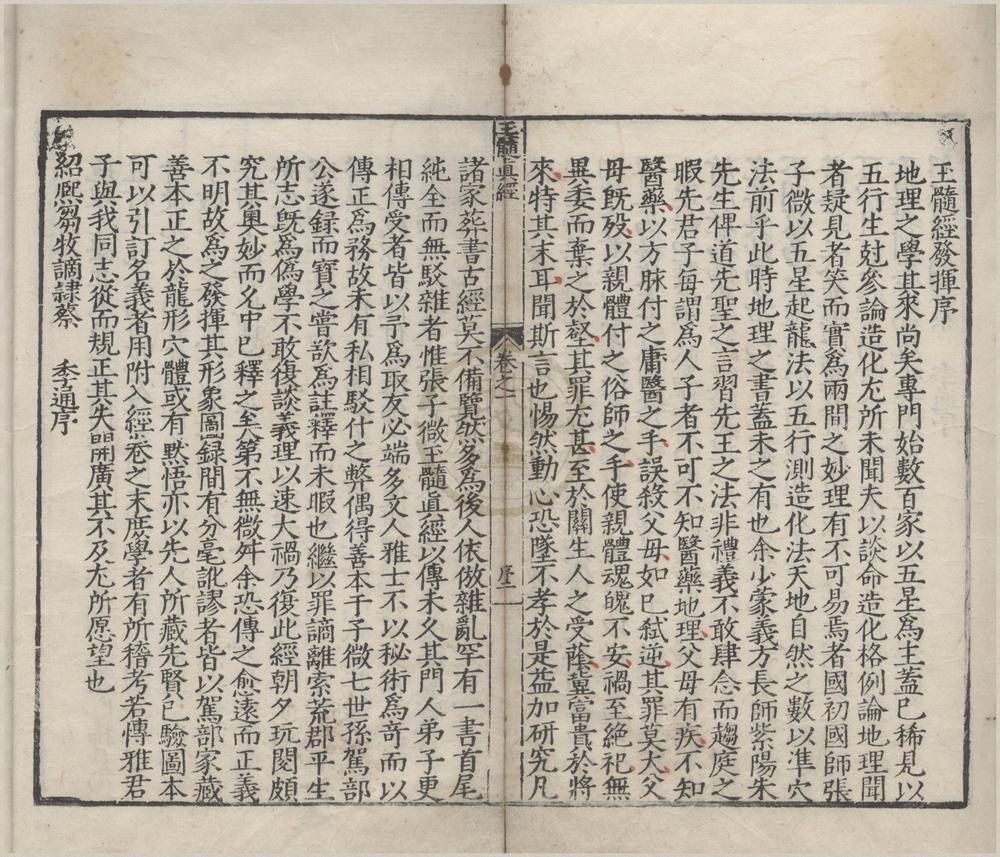 玉髓經發揮序
地理之學其來尚矣專門始數百家以五星爲主蓋已稀見以
五行生尅參論造化尤所未聞夫以談命造化格例論地理聞
者疑見者笑而實爲兩間之妙理有不可易焉者國初國師張
子微以五星起龍法以五行測造化法天地自然之數以準穴
法前乎此時地理之書蓋未之有也余少蒙義方長師紫陽朱
先生俾道先聖之言習先王之法非禮義不敢肆念而趨庭之
暇先君子每謂爲人子者不可不知醫藥地理父母有疾不知
醫藥以方脉付之庸醫之手誤殺父母如巳弑逆其罪莫大父
母旣歿以親體付之俗師之手使親體魂魄不安禍至絶祀無
異委而棄之於壑其罪尤甚至於關生人之受蔭冀富貴於將
來特其末耳聞斯言也惕然動心恐墜不孝於是益加研究凡
玉髓眞經
卷之一
序
諸家葬書古經莫不備覽然多爲後人依倣雜亂罕有一書首尾
純全而無駁雜者惟張子微玉髓眞經以傳未久其門人弟子更
相傳受者皆以予爲取友必端多文人雅士不以秘術爲奇而以
傳正爲務故未有私相駁什之弊偶得善本于子微七世孫駕部
公遂録而寶之嘗欲爲註釋而未暇也繼以罪謫離索荒郡平生
所志旣爲僞學不敢復談義理以速大禍乃復此經朝夕玩閱頗
究其奥妙而允中巳釋之矣第不無微舛余恐傳之愈遠而正義
不明故爲之發揮其形象圖録間有分毫訛謬者皆以駕部家藏
善本正之於龍形穴體或有默悟亦以先人所藏先賢已驗圖本
可以引訂名義者用附入經卷之末庶學者有所稽考若傳雅君
子與我同志從而規正其失開廣其不及尤所愿望也
紹熙芻牧謫隷蔡　季通序